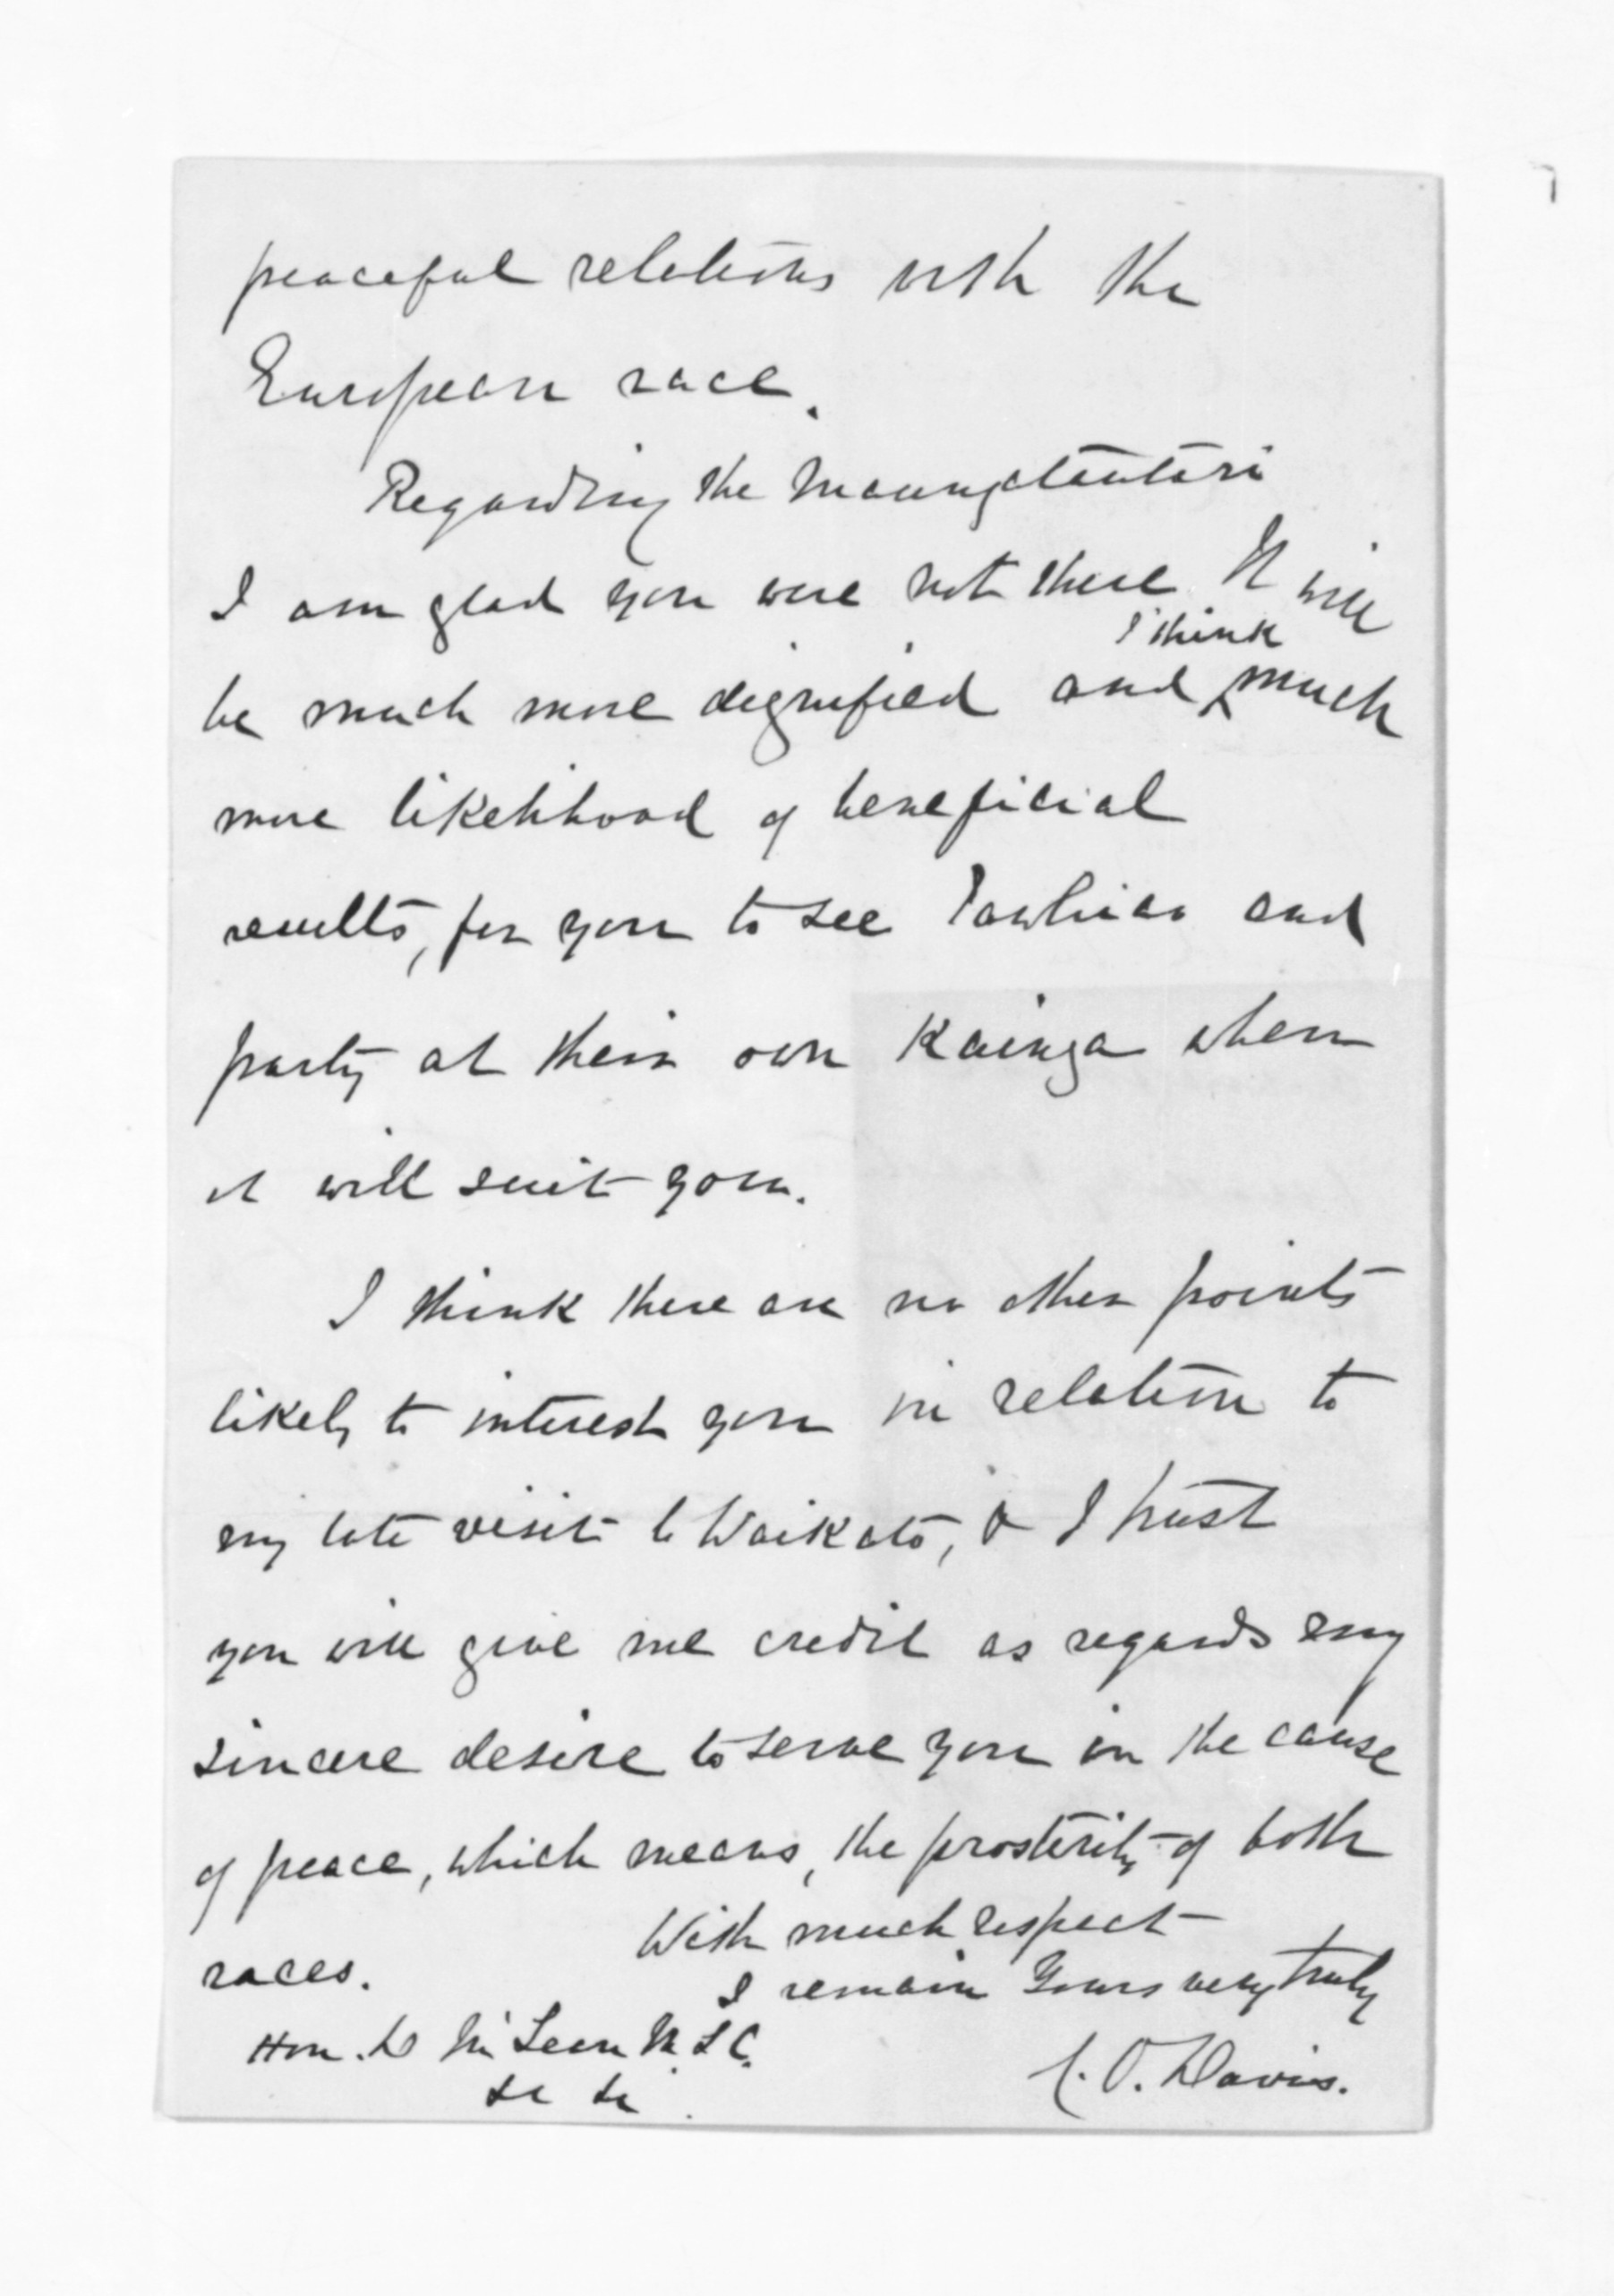 peaceful relations with the
European race.
Regarding the Maungatautari
I am glad you were not there. It will
I think
be much more dignified and ‸ much
more likelihood of beneficial
results, for you to see Tawhiao and
party at their own Kainga when
it will suit you.
I think there are no other points
likely to interest you in relation to
my late visit to Waikato, & I trust
you will give me credit as regards my
sincere desire to serve you in the cause
of peace, which means, the prosterity of both
races.
With much respect
I remain Yours very truly
Hon. D McLean M.L.C.
C. O. Davis.